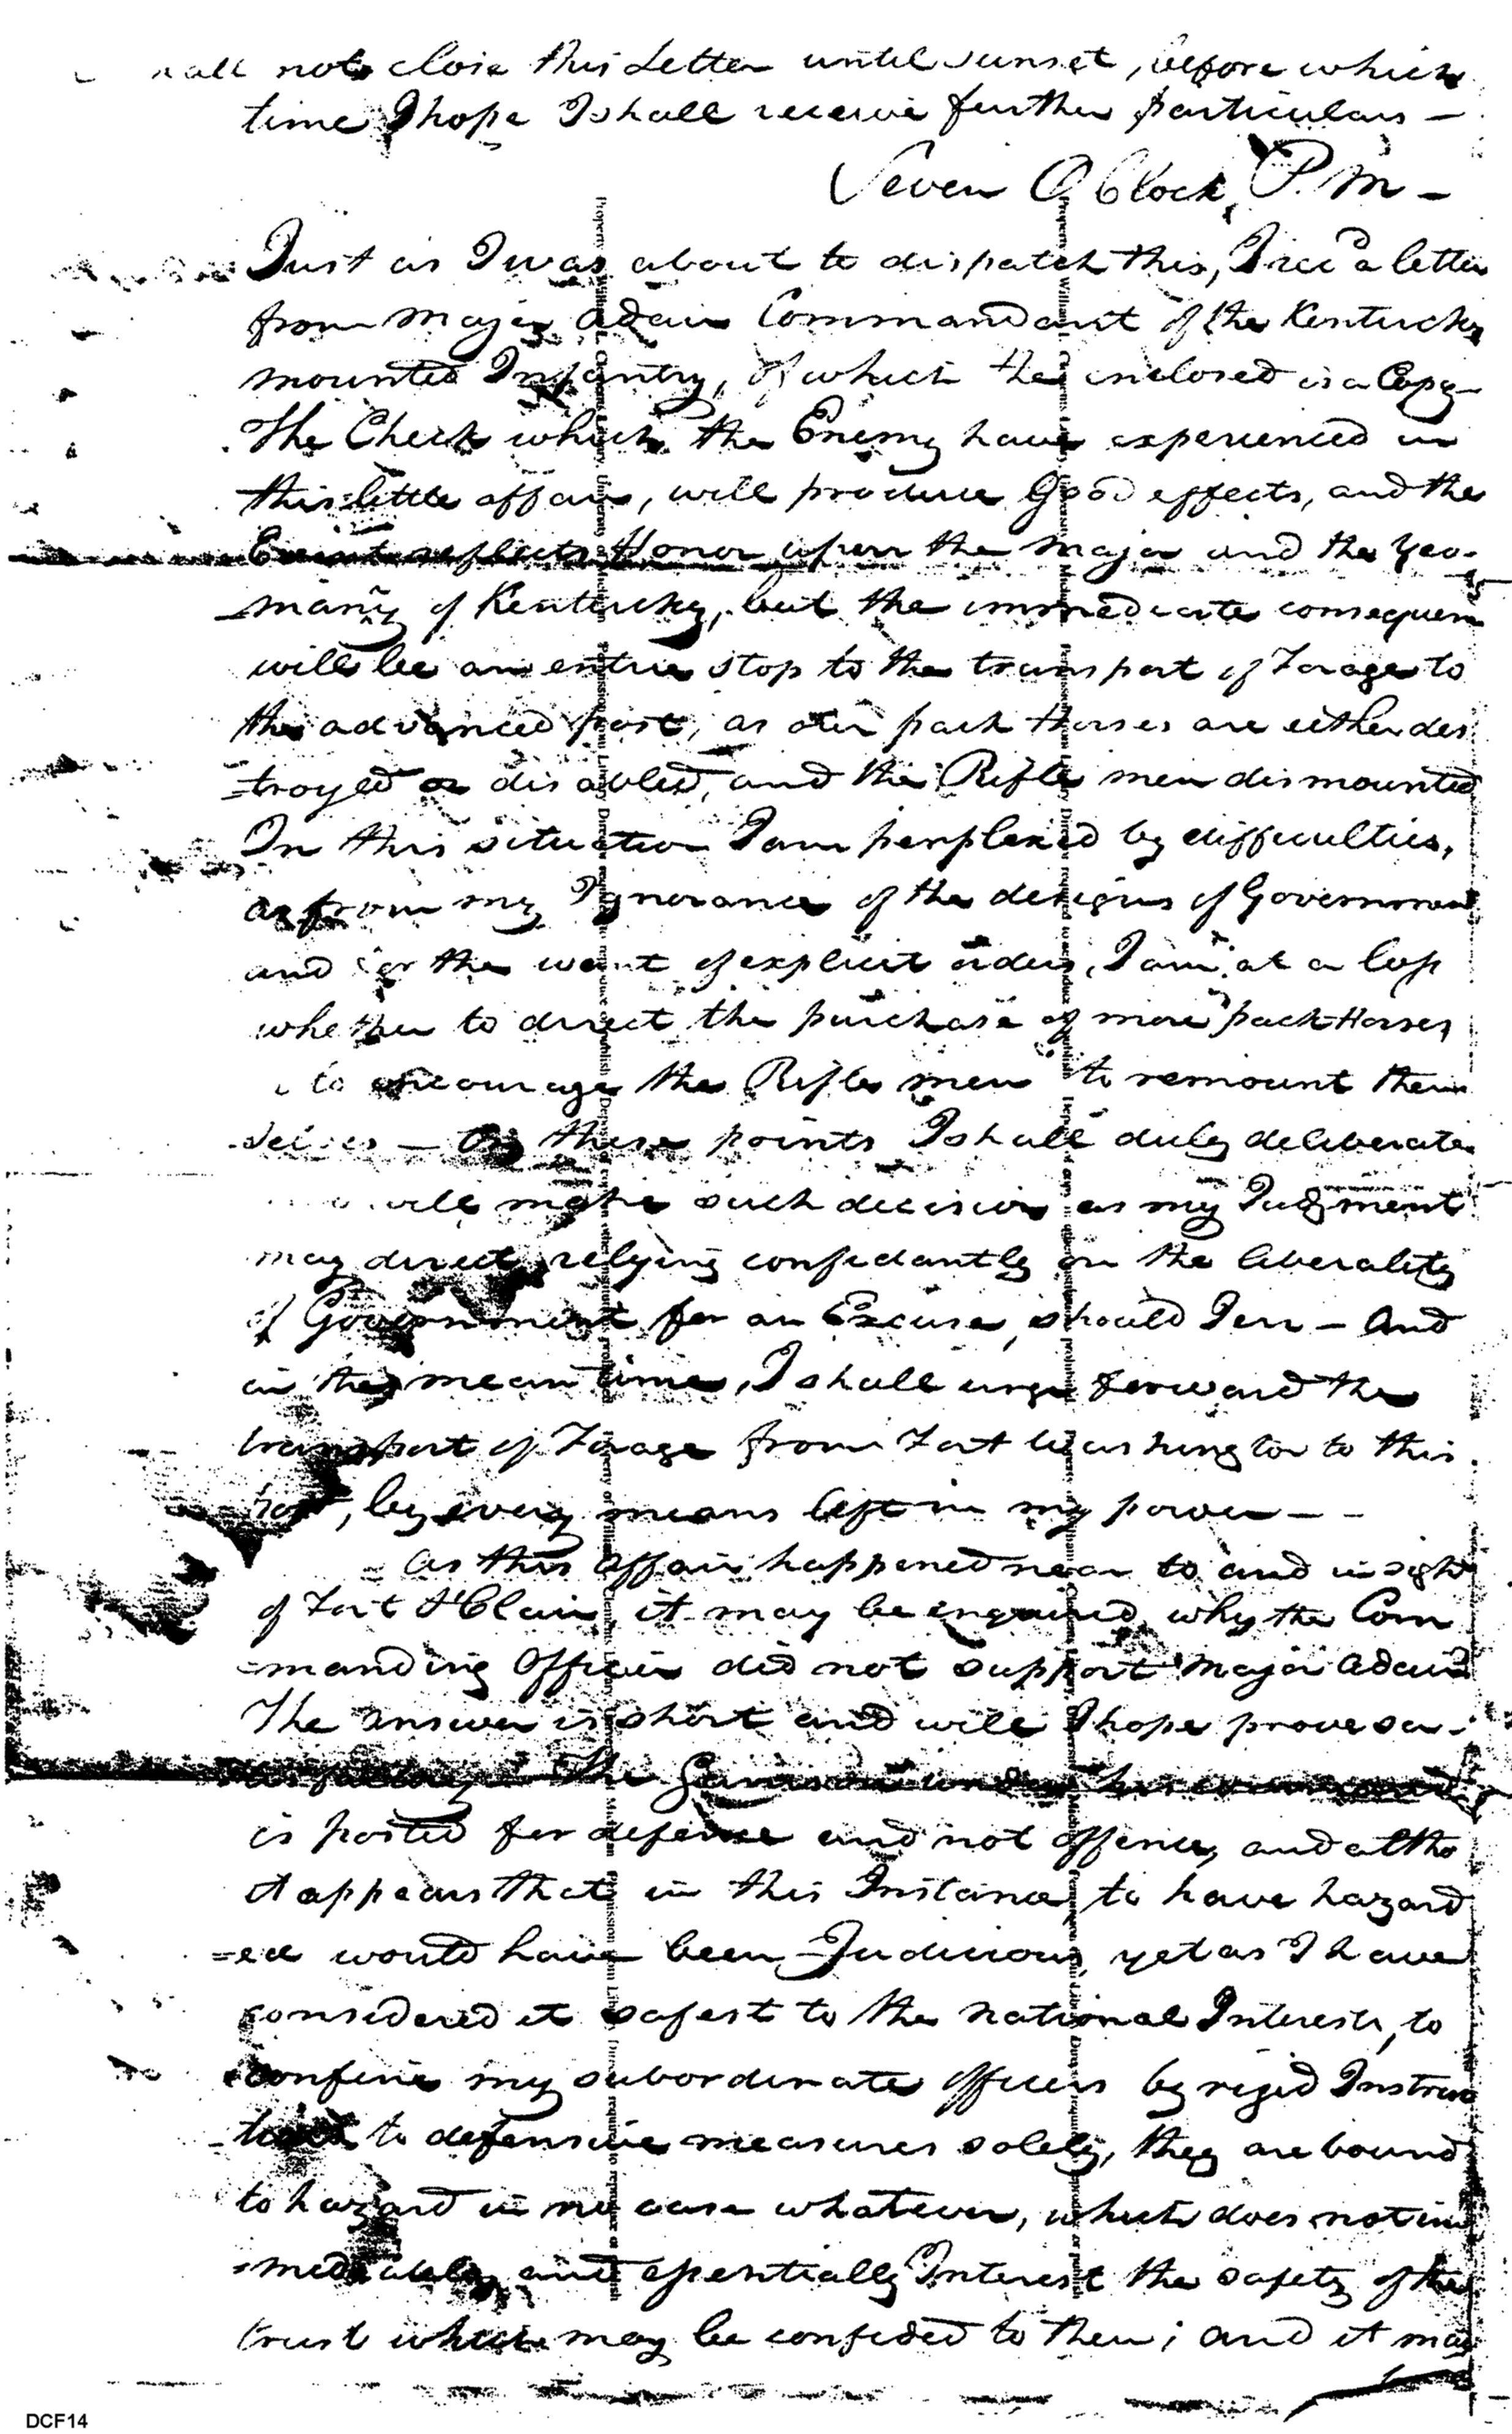 shall not close this Letter until sunset, before which
time I hope I shall receive further particulars —
Seven O Clock, P. M —
Just as I was about to dispatch this, I recd a letter
from Major Adair Commandant of the Kentucky
mounted Infantry, of which the inclosed is a Copy
The Check which the Enemy have experienced in
this little affair, will produce Good effects, and the
Event reflects Honor upon the Major and the Yeo-
manry of Kentucky, but the immediate consequen
will be an entire stop to the transport of Forage to
the advanced post, as our pack Horses are either des
=troyed or disabled, and the Rifle men dismounted
In this situation I am perplexed by difficulties,
as from my Ignorance of the designs of Government
and for the want of explicit orders, I am at a loss
whether to direct the purchase of more pack Horses,
to encourage the Rifle men to remount them
selves — On these points I shall duly deliberate
will make such decision as my Judgment
may direct, relying confidantly on the liberality
of Government for an Excuse, should I err — And
in the mean time, I shall urge forward the
transport of Forage from Fort Washington to this
post, by every means left in my power — —
As this affair happened near to and in sight
of Fort St Clair, it may be enquired, why the Com
=manding Officer did not support Major Adair?
The answer is short and will I hope prove sa-
tisfactory — The Garrison under his command
is posted for defense and not offence, and altho
it appears that in this Instance, to have hazard
=ed would have been Judicious, yet as I have
considered it safest to the national Interests, to
confine my subordinate officers by rigid Instruc
tions to defensive measures solely, they are bound
to hazard in no case whatever, which does not im
=mediately and essentially Interest the safety of the
trust which may be confided to them; and it may
DCF14